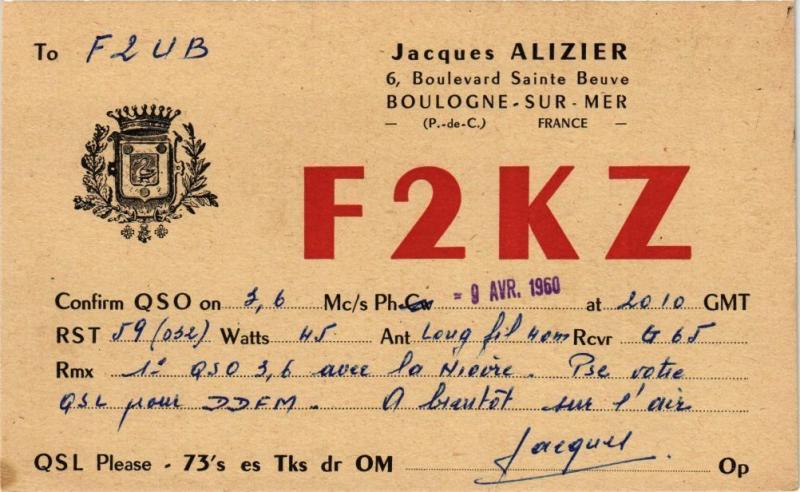 To F2UB
Jacques ALIZIER
6, Boulevard Sainte Beuve
BOULOGNE-SUR-MER
— (P.-de-C.) FRANCE —
F2KZ
Confirm QSO on 3,6 Mc/s Ph-Cw = 9 AVR. 1960 at 2010 GMT
RST 59 (032) Watts 45 Ant Long fil 40m Rcvr G 65
Rmx 1° QSO 3,6 avec la Nièvre. Pse votre
QSL pour DDFM. A bientôt sur l'air
Jacques
QSL Please - 73's es Tks dr OM Op